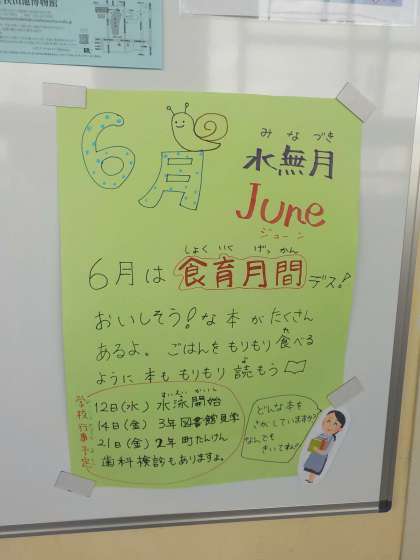 6月
みなづき
水無月
June
ジューン
しょくいくげっかん
6月は食育月間デス!
おいしそう!な本がたくさん
た
あるよ。ごはんをもりもり食べる
よ
ように本ももりもり読もう
学校行事予定
すいえいかいし
12日(水) 水泳開始
14日(金) 3年図書館見学
21日(金) 2年町たんけん
歯科検診もありますよ。
どんな本を
さがしていますか?
なんでも
きいてね!